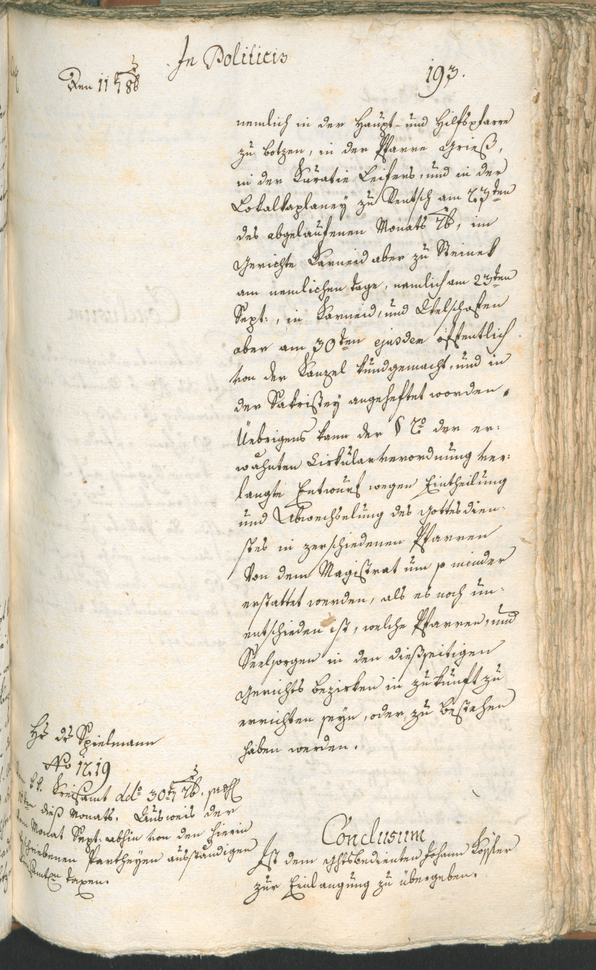 In Politicis
Den 11 t 8b
193.
nemlich in der Haupt- und Hilfspfarre
zu Botzen, in der Pfarre Grieß,
in der Kuratie Leifers, und in der
Lokalkaplaney zu Rentsch am 23ten
des abgelaufenen Monats 7b, im
Gerichte Karneid aber zu Steinek
am nemlichen tage, nemlich am 23ten
Sept:, in Karneid, und
aber am 30ten öffentlich
von der Kanzel kundgemacht, und in
der Sakristey angeheftet worden.
Uebrigens kann der § der er:
wähnten Cirkularverordnung ver:
langte Entwurf wegen Eintheilung
und Abwechselung des Gottesdien:
stes in zerschiedenen Pfarren
von dem Magistrat um so minder
erstattet werden, als es noch un:
entschieden ist, welche Pfarren, und
Seelsorgen in den diesseitigen
Gerichts bezirken in zukunft zu
errichten seyn, oder zu bestehen
haben werden.
Hr de Spielmann
No 1219
k. k. Kreisamt ddo 30t 7b.
dieß Monats. Ausweis der
Monat Sept. abhin von den hierin
beschriebenen Partheyen ausständigen
taxen.
Conclusum
Ist dem gerichtsbedienten Johann Koffler
zur Einlangung zu übergeben.